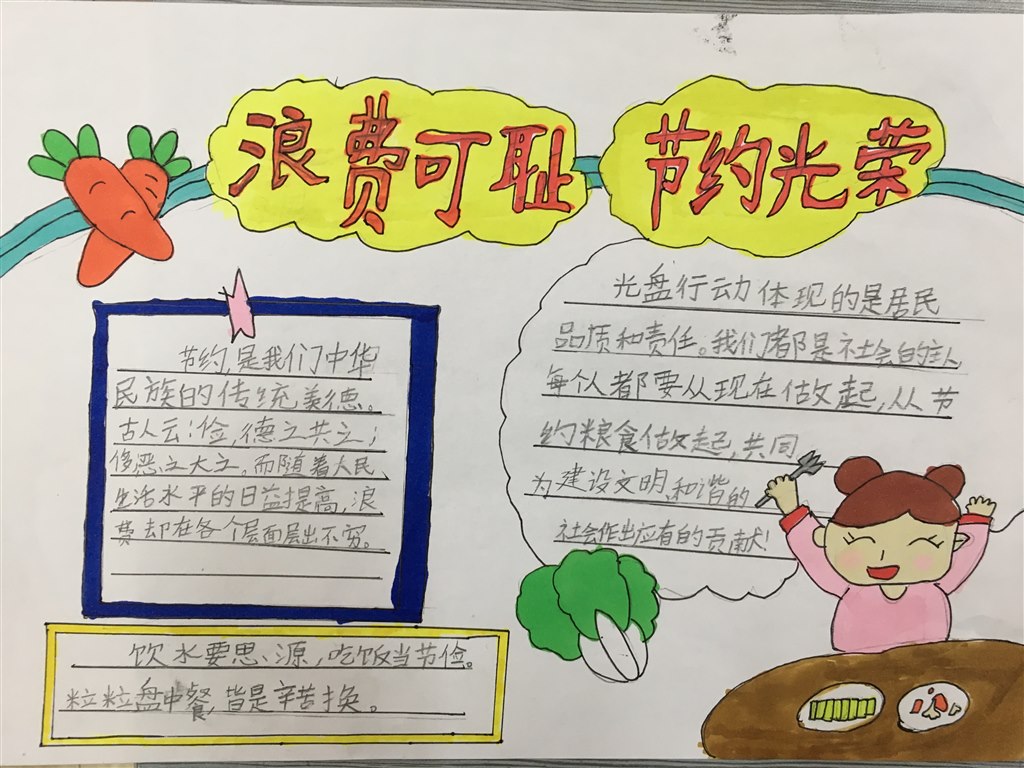 浪费可耻 节约光荣
节约,是我们中华
民族的传统美德。
古人云:俭,德之共之;
侈恶之大之。而随着人民
生活水平的日益提高,浪
费却在各个层面层出不穷。
光盘行动体现的是居民
品质和责任。我们都是社会的主人
每个人都要从现在做起,从节
约粮食做起,共同
为建设文明、和谐的
社会作出应有的贡献!
饮水要思源,吃饭当节俭。
粒粒盘中餐,皆是辛苦换。